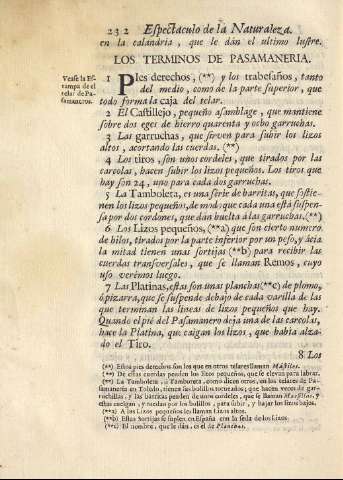 232 Espectaculo de la Naturaleza.
en la calandria, que le dán el ultimo lustre.
LOS TERMINOS DE PASAMANERIA.
Vease la Es-
tampa de el
telar de Pa-
samaneros.
1 Pies derechos, (**) y los trabesaños, tanto
del medio, como de la parte superior, que
todo forma la caja del telar.
2 El Castillejo, pequeño asamblage, que mantiene
sobre dos eges de hierro quarenta y ocho garruchas.
3 Las garruchas, que sirven para subir los lizos
altos, acortando las cuerdas. (**)
4 Los tiros, son unos cordeles, que tirados por las
carcolas, hacen subir los lizos pequeños. Los tiros que
hay son 24, uno para cada dos garruchas.
5 La Tamboleta, es una serie de barritas, que sostie-
nen los lizos pequeños, de modo que cada una está suspen-
sa por dos cordones, que dán buelta á las garruchas. (**)
6 Los Lizos pequeños, (**a) que son cierto numero
de hilos, tirados por la parte inferior por un peso, y ácia
la mitad tienen unas sortijas (**b) para recibir las
cuerdas transversales, que se llaman Remos, cuyo
uso verémos luego.
7 Las Platinas, estas son unas planchas (**c) de plomo,
ó pizarra, que se suspende debajo de cada varilla de las
que terminan las lineas de lizos pequeños que hay.
Quando el pie del Pasamanero deja una de las carcolas,
hace la Platina, que caigan los lizos, que habia alza-
do el Tiro.
8 Los
(**) Estos pies derechos son los que en otros telares llaman Mástiles.
(**) De estas cuerdas penden los lizos pequeños, que se elevan para labrar.
(**) La Tamboleta, ó Tambereta, como dicen otros, en los telares de Pa-
samaneria en Toledo, tienen sus bolillos torneados, que hacen veces de gar-
ruchillas, y las barritas penden de unos cordeles, que se llaman y
estas cuelgan, y ruedan por los bolillos, para subir, y bajar los lizos bajos.
(**a) A los Lizos pequeños les llaman Lizos altos.
(**b) Estas Sortijas se suplen en España con la seda de los Lizos.
(**c) El nombre, que le dán, es el de Platinas.